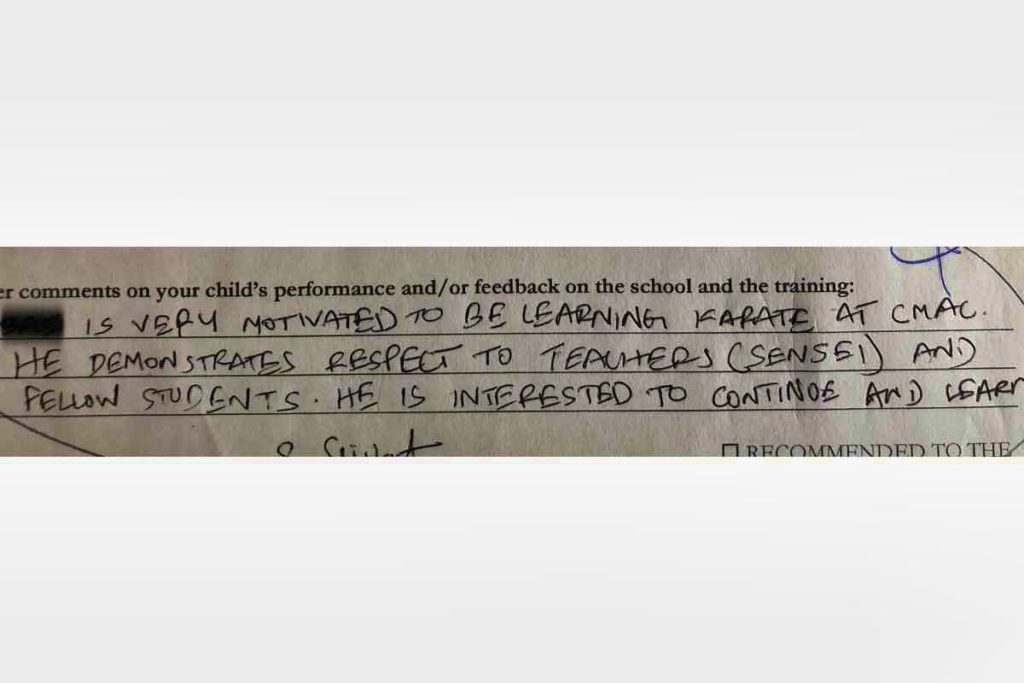 er comments on your child's performance and/or feedback on the school and the training:
IS VERY MOTIVATED TO BE LEARNING KARATE AT CMAC.
HE DEMONSTRATES RESPECT TO TEACHERS (SENSEI) AND
FELLOW STUDENTS. HE IS INTERESTED TO CONTINUE AND LEARN
RECOMMENDED TO THE